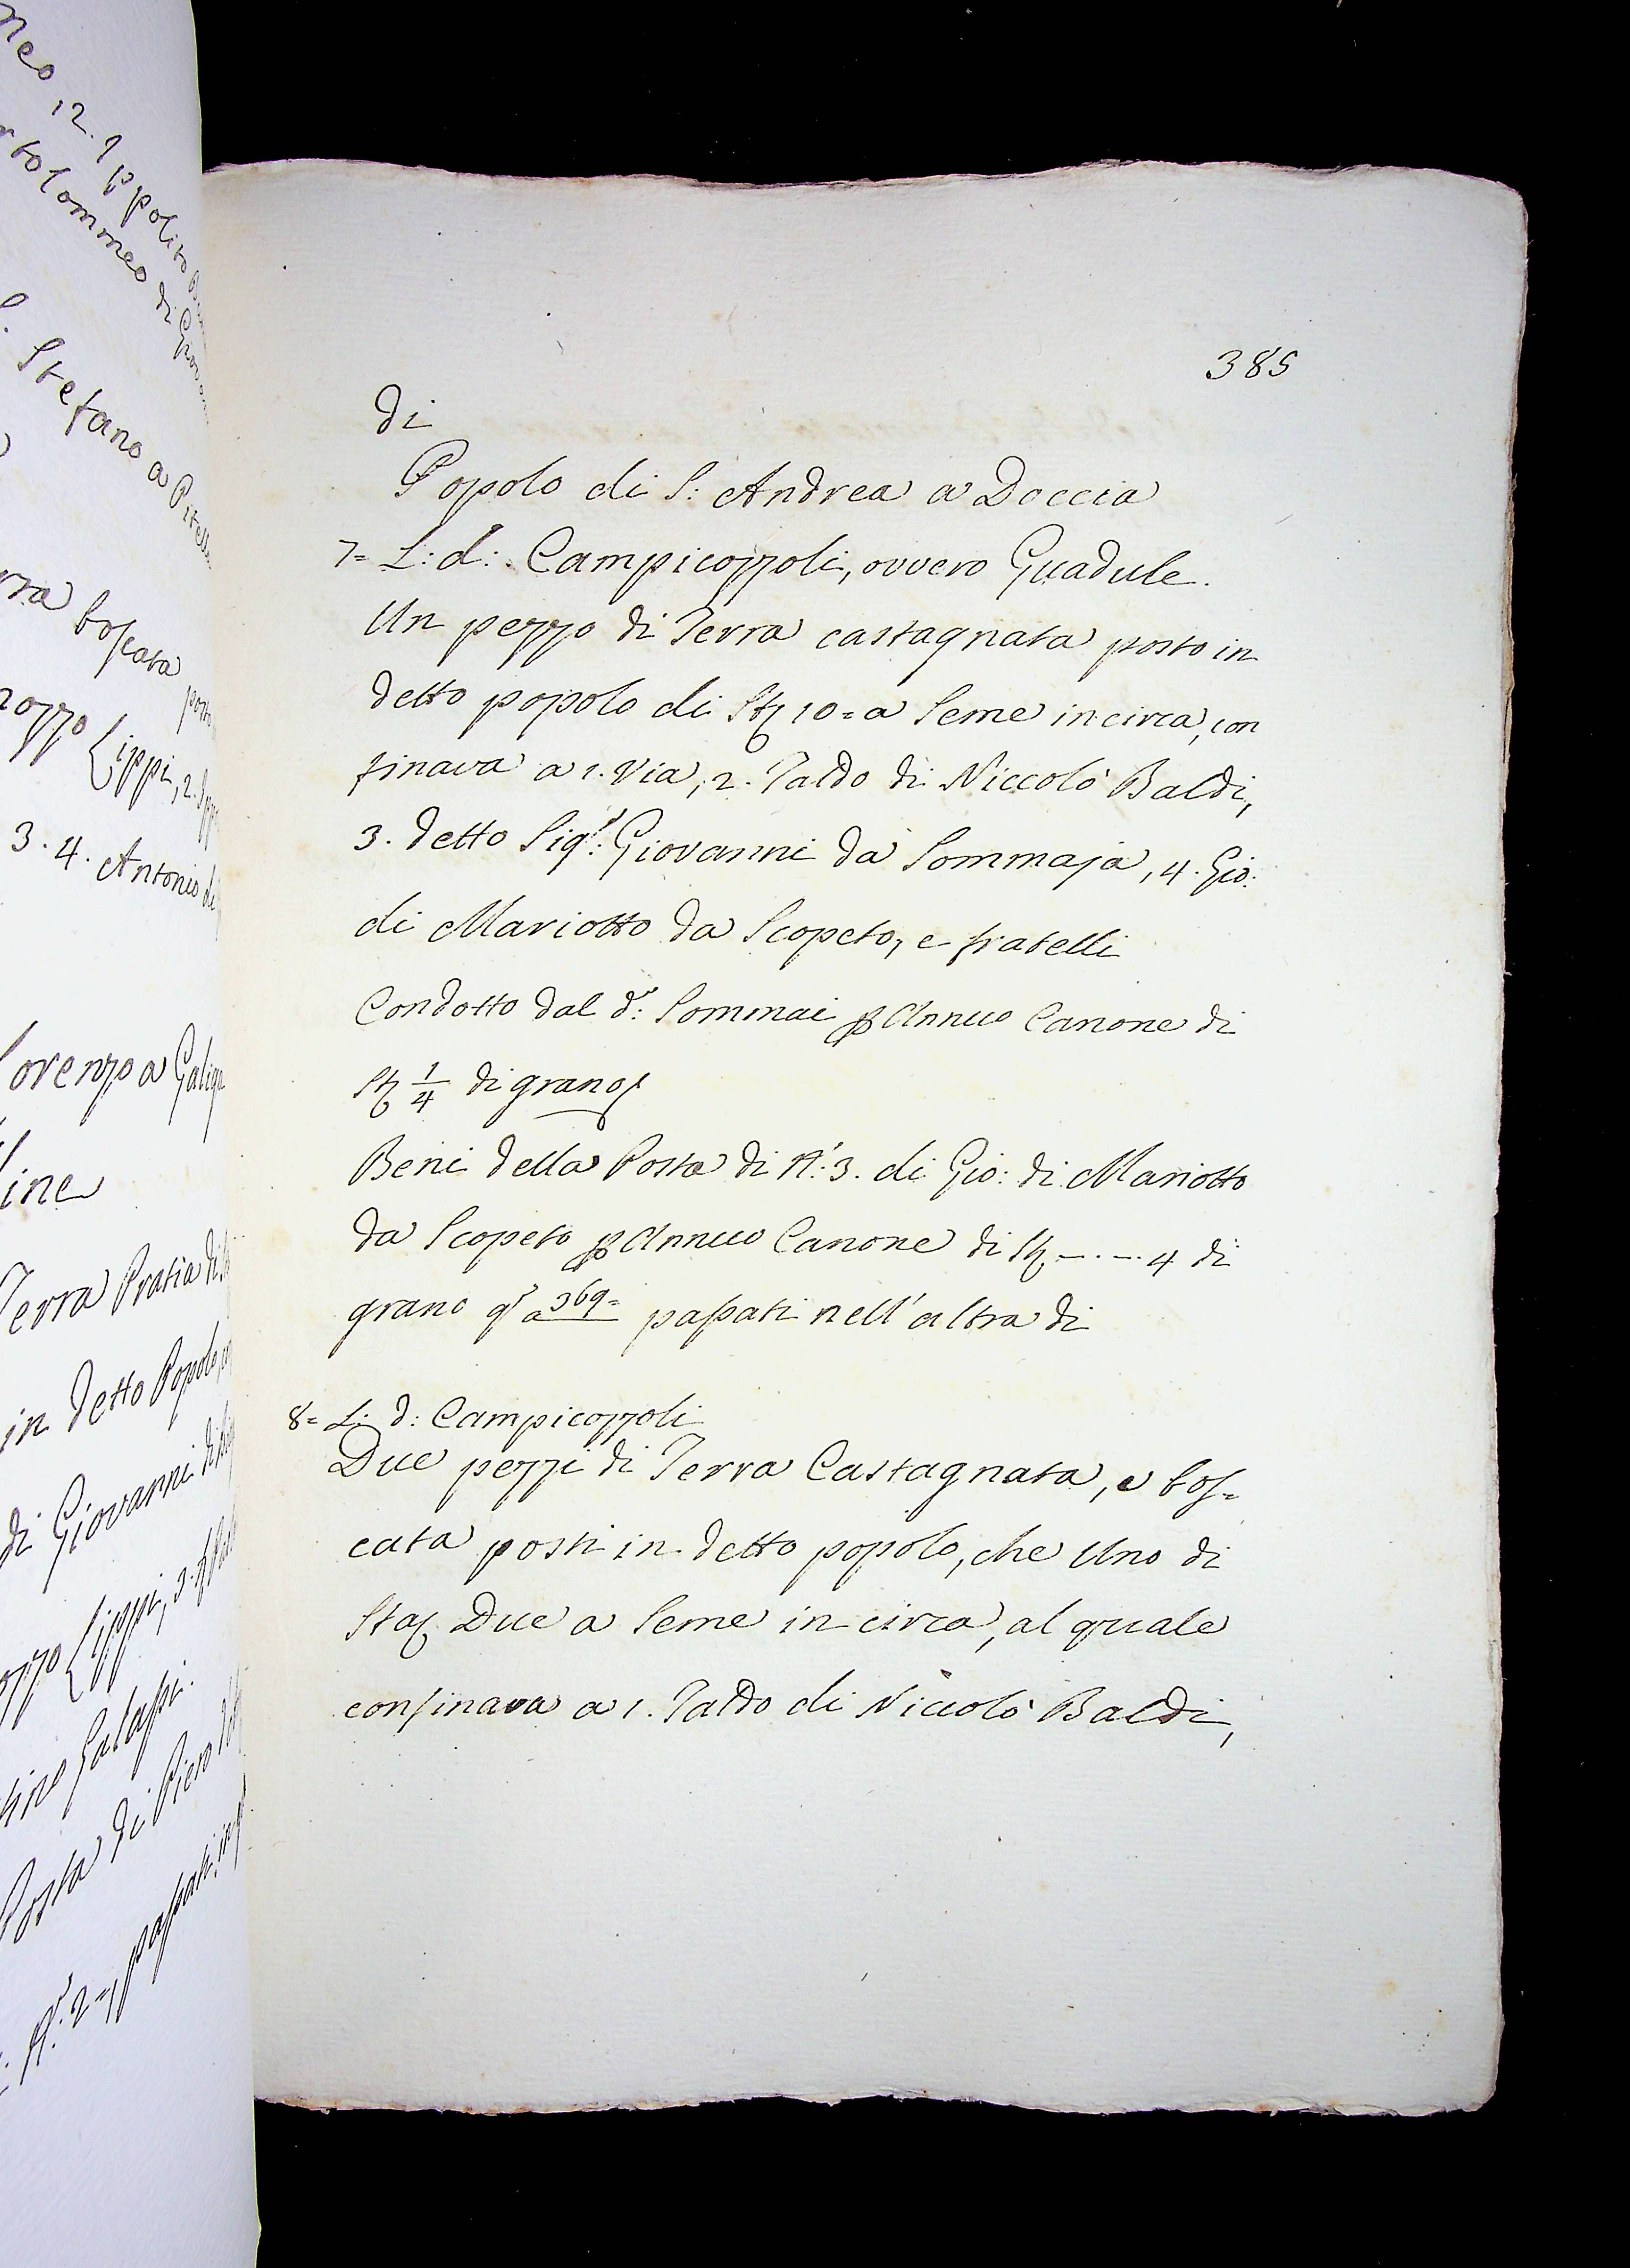 neo 12. Ippolito
rtolommeo di Giovan
S. Stefano a
rra boscata posto
nozzo Lippi, 2.
3. 4. Antonio di
Lorenzo a
line
Terra Pratia di
in detto Popolo
di Giovanni di
ozzo Lippi, 3.
Posta di Piero
N.° 2= passati in
385
di
Popolo di S: Andrea a Doccia
7= L: d: Campicozzoli, ovvero Guadule.
Un pezzo di Terra castagnata posto in
detto popolo di St. 10= a Seme in circa, con
finava a 1. Via, 2. Taldo di Niccolò Baldi,
3. detto Sig.r: Giovanni da Sommaja, 4. Gio:
di Mariotto da Scopeto, e fratelli
Condotto dal d.o: Sommai p Annuo Canone di
St. 1/4 di grano
Beni della Posta di N.°: 3. di Gio: di Mariotto
da Scopeto p Annuo Canone di St. -.-. 4 di
grano q.to a 369= passati nell'altra di
8= L: d: Campicozzoli
Due pezzi di Terra Castagnata, e bos=
cata posti in detto popolo, che Uno di
Sta. Due a Seme in circa, al quale
confinava a 1. Taldo di Niccolò Baldi,